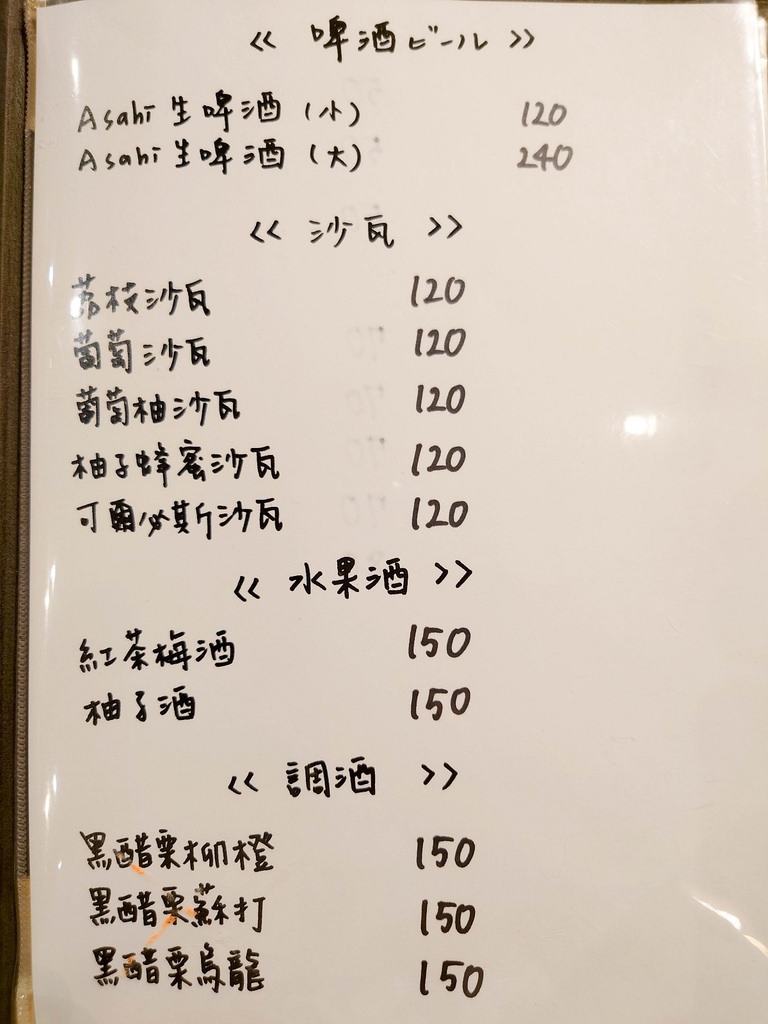 << 啤酒ビール >>
Asahi 生啤酒 (小) 120
Asahi 生啤酒 (大) 240
<< 沙瓦 >>
荔枝沙瓦 120
葡萄沙瓦 120
葡萄柚沙瓦 120
柚子蜂蜜沙瓦 120
可爾必斯沙瓦 120
<< 水果酒 >>
紅茶梅酒 150
柚子酒 150
<< 調酒 >>
黑醋栗柳橙 150
黑醋栗蘇打 150
黑醋栗烏龍 150